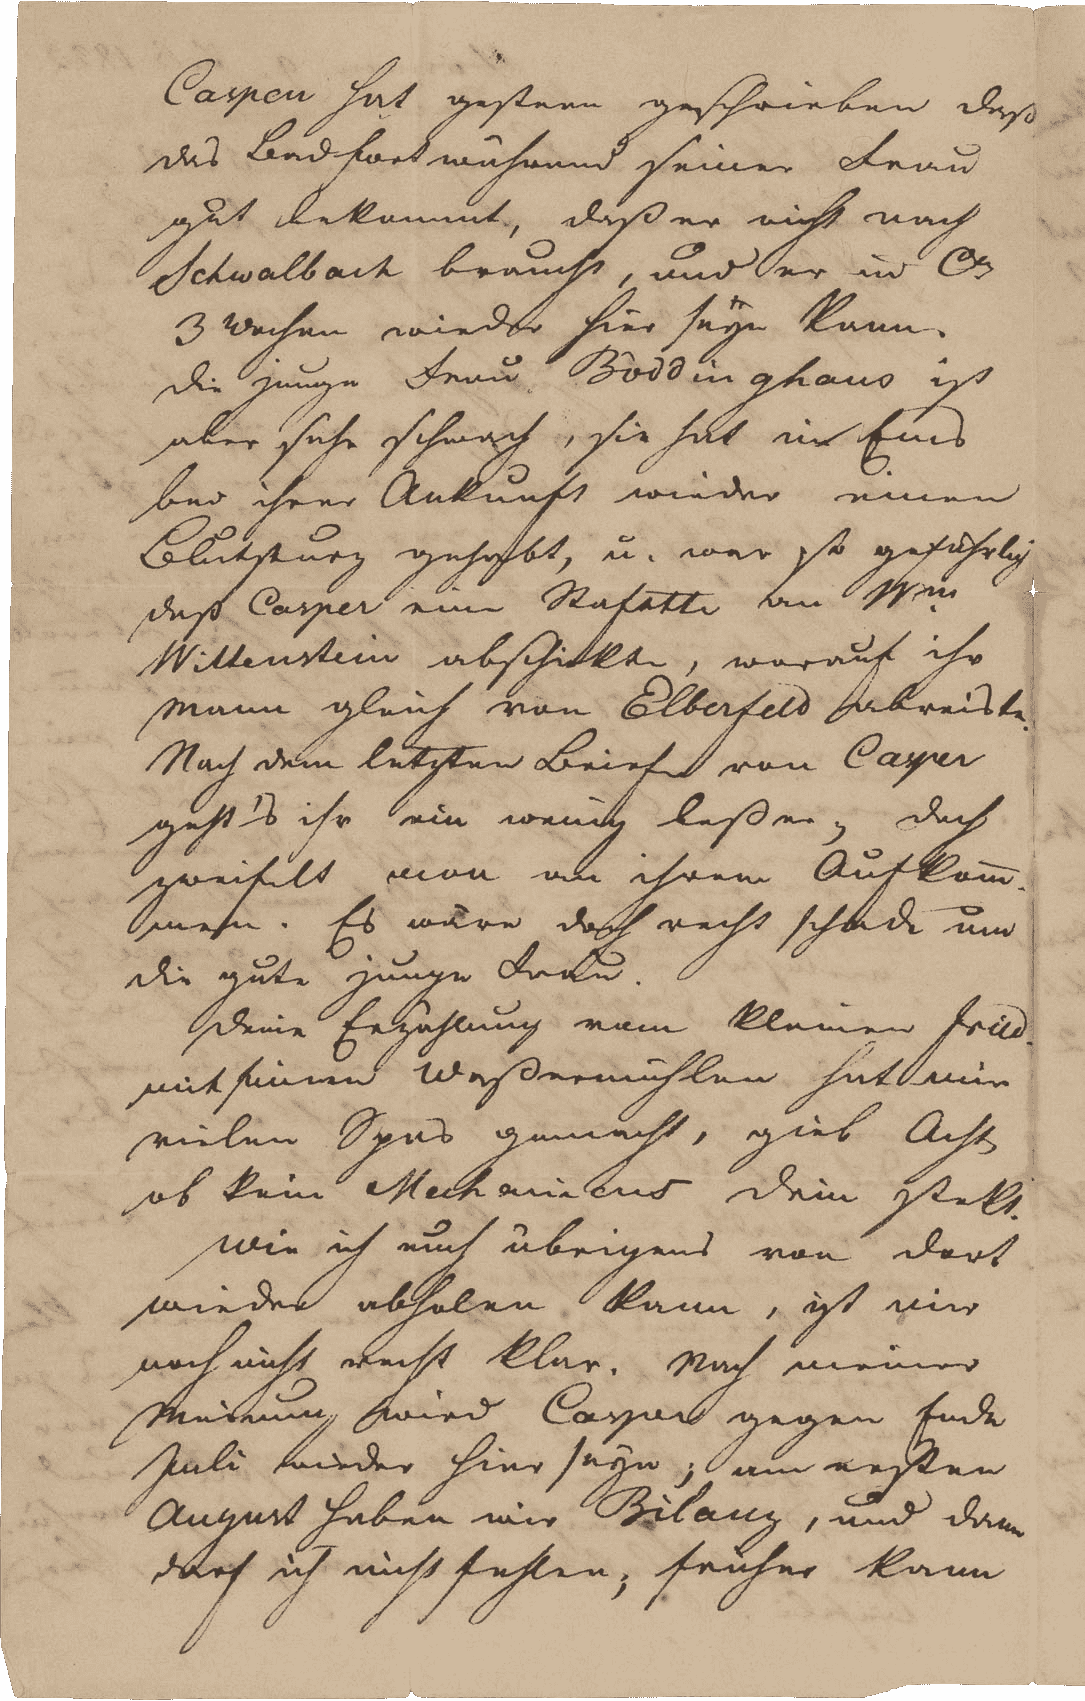 Casper hat gestern geschrieben daß
das Bad fortwährend seiner Frau
gut bekommt, daß er nicht nach
Schwalbach braucht, und er in Ca
3 Wochen wieder hier seÿn kann.
Die junge Frau Böddinghaus ist
aber sehr schwach, sie hat in Ems
beÿ ihrer Ankunft wieder einen
Blutsturz gehabt, u. war so gefährlich
daß Casper eine Stafette an Wm
Wittenstein abschickte, worauf ihr
Mann gleich von Elberfeld abreiste.
Nach dem letzten Briefe von Casper
geht's ihr ein wenig beßer; doch
zweifelt man an ihrem Aufkom̅-
men. Es wäre doch recht schade um
die gute junge Frau.
Deine Erzählung vom kleinen Fried.
mit seinen Waßermühlen hat mir
vielen Spas gemacht, gieb Acht
ob kein Mechanicus drin stekt.
Wie ich euch übrigens von dort
wieder abholen kann, ist mir
noch nicht recht klar. Nach meiner
Meinung wird Casper gegen Ende
Juli wieder hier seÿn; am ersten
August haben wir Bilanz, und dann
darf ich nicht fehlen; früher kann